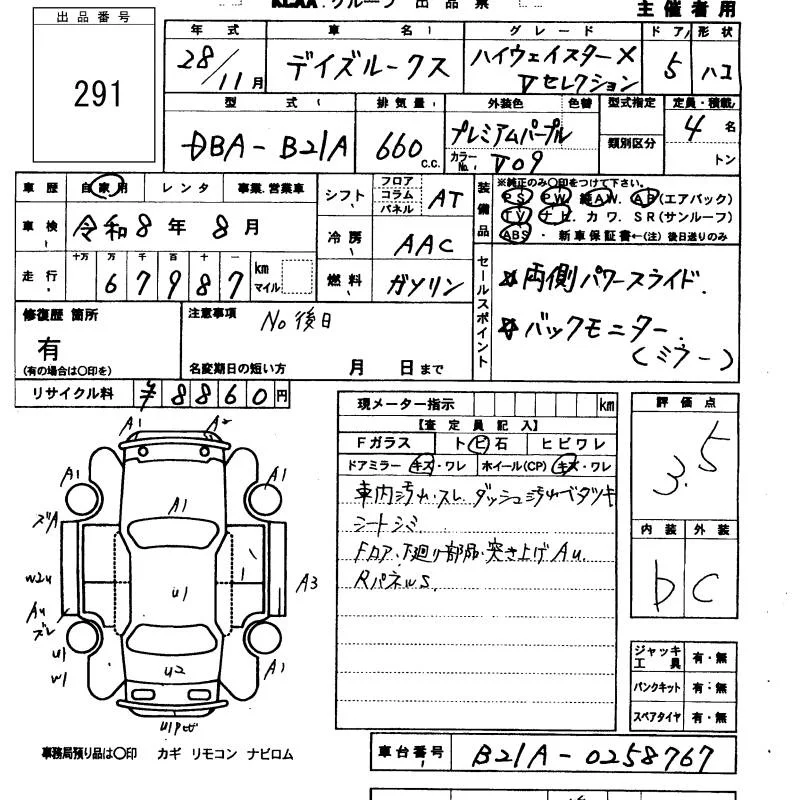 KCAA グループ 出品票
主催者用
出品番号
291
年式
28/11月
車名
デイズルークス
グレード
ハイウェイスターX
Vセレクション
ドア
5
形状
ハコ
型式
DBA-B21A
排気量
660 c.c.
外装色 色替
プレミアムパープル
カラーNo. V09
型式指定
類別区分
定員・積載
4名
トン
車歴 自家用 レンタ 事業.営業車
車検 令和8年8月
走行 十万 万 千 百 十 一
67987 km
マイル
シフト フロア コラム パネル AT
冷房 AAC
燃料 ガソリン
装備品
※純正のみ〇印をつけて下さい。
PS PW 純AW. AB(エアバック)
TV ナビ. カワ. SR(サンルーフ)
ABS ・ 新車保証書←(注) 後日送りのみ
セールスポイント
☆両側パワースライド.
☆バックモニター
(ミラー)
修復歴 箇所
有
(有の場合は〇印を)
注意事項
No後日
名変期日の短い方 月 日まで
リサイクル料 ¥8860円
現メーター指示 km
【査定員記入】
Fガラス トビ石 ヒビワレ
ドアミラー キズ・ワレ ホイール(CP) キズ・ワレ
車内汚れ.スレ ダッシュ汚れベタツキ
シートシミ
Fロア.下廻り部品.突き上げAu.
RパネルS.
評価点
3.5
内装 外装
D C
ジャッキ工具 有・無
パンクキット 有・無
スペアタイヤ 有・無
A1 A2
A1 A1
A1
ズA
W2U
U1
A3
AU
ズレ
U1
W1
U2
A1
事務局預り品は〇印 カギ リモコン ナビロム
車台番号 B21A-0258767